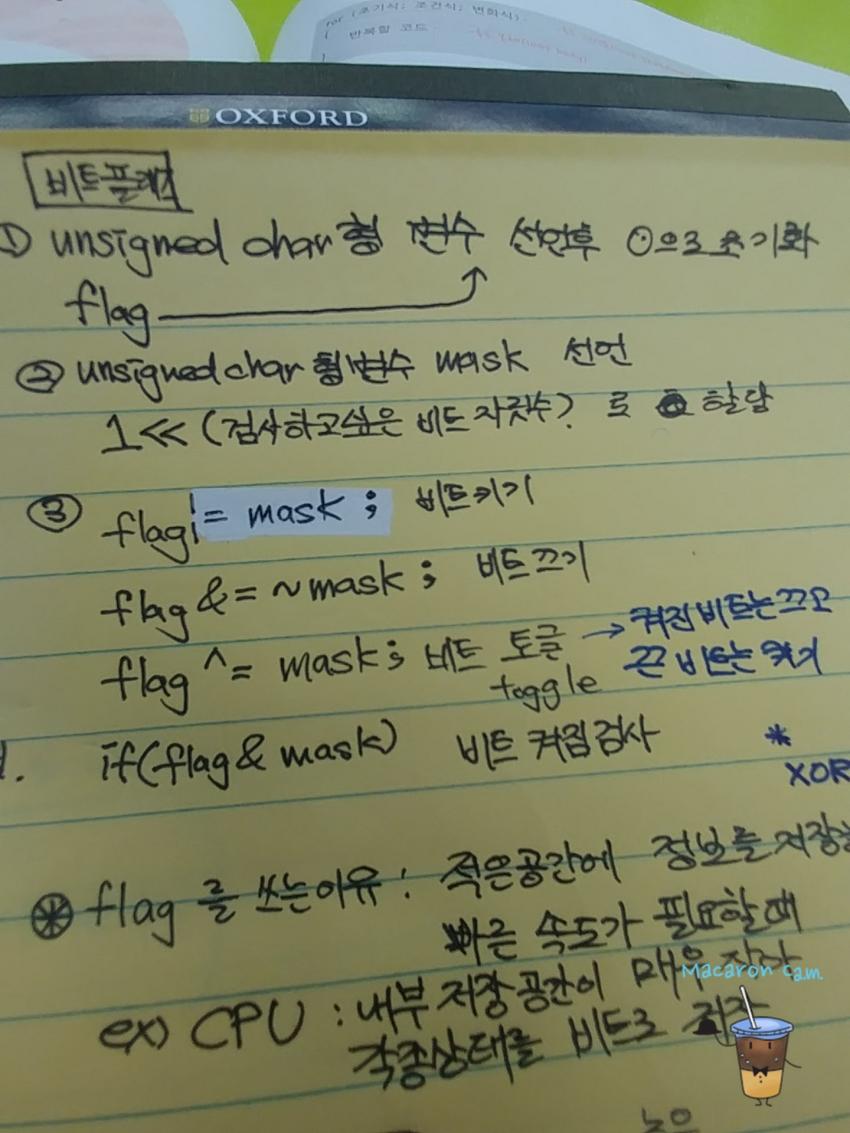 for (초기식; 조건식; 변화식)
{ 반복할 코드
OXFORD
비트플래그
① unsigned char형 변수 선언후 0으로 초기화
flag
② unsigned char 형변수 mask 선언
1<< (검사하고싶은 비트 자릿수) 로 할당
③ flag |= mask ; 비트켜기
flag &= ~mask ; 비트끄기
flag ^= mask ; 비트 토글 → 켜진비트는끄고
toggle 끈 비트는 켜기
if(flag & mask) 비트 켜짐검사
*
XOR
⊛ flag 를 쓰는이유 : 적은공간에 정보를 저장
빠른 속도가 필요할때
ex) CPU : 내부 저장공간이 매우
각종상태를 비트로 저장
Macaron Cam.